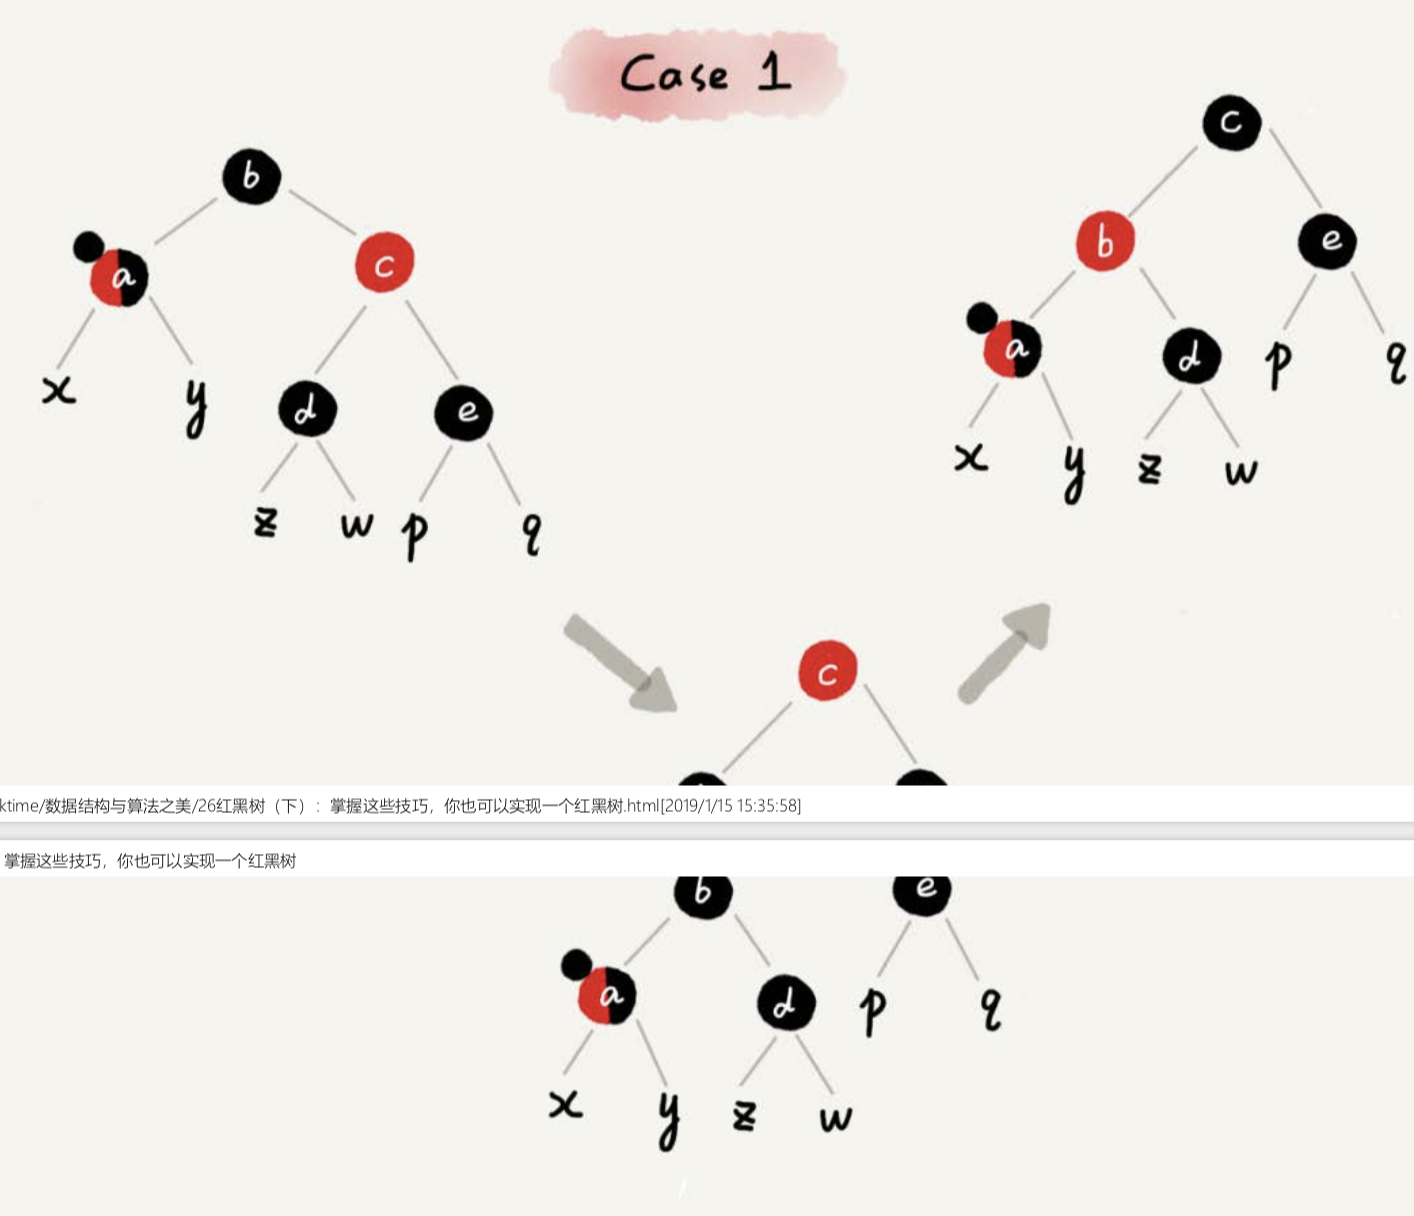 Case 1
b
a c
x y d e
z w p q
c
b e
a d p q
x y z w
c
ktime/数据结构与算法之美/26红黑树（下）：掌握这些技巧，你也可以实现一个红黑树.html[2019/1/15 15:35:58]
掌握这些技巧，你也可以实现一个红黑树
b e
a d p q
x y z w